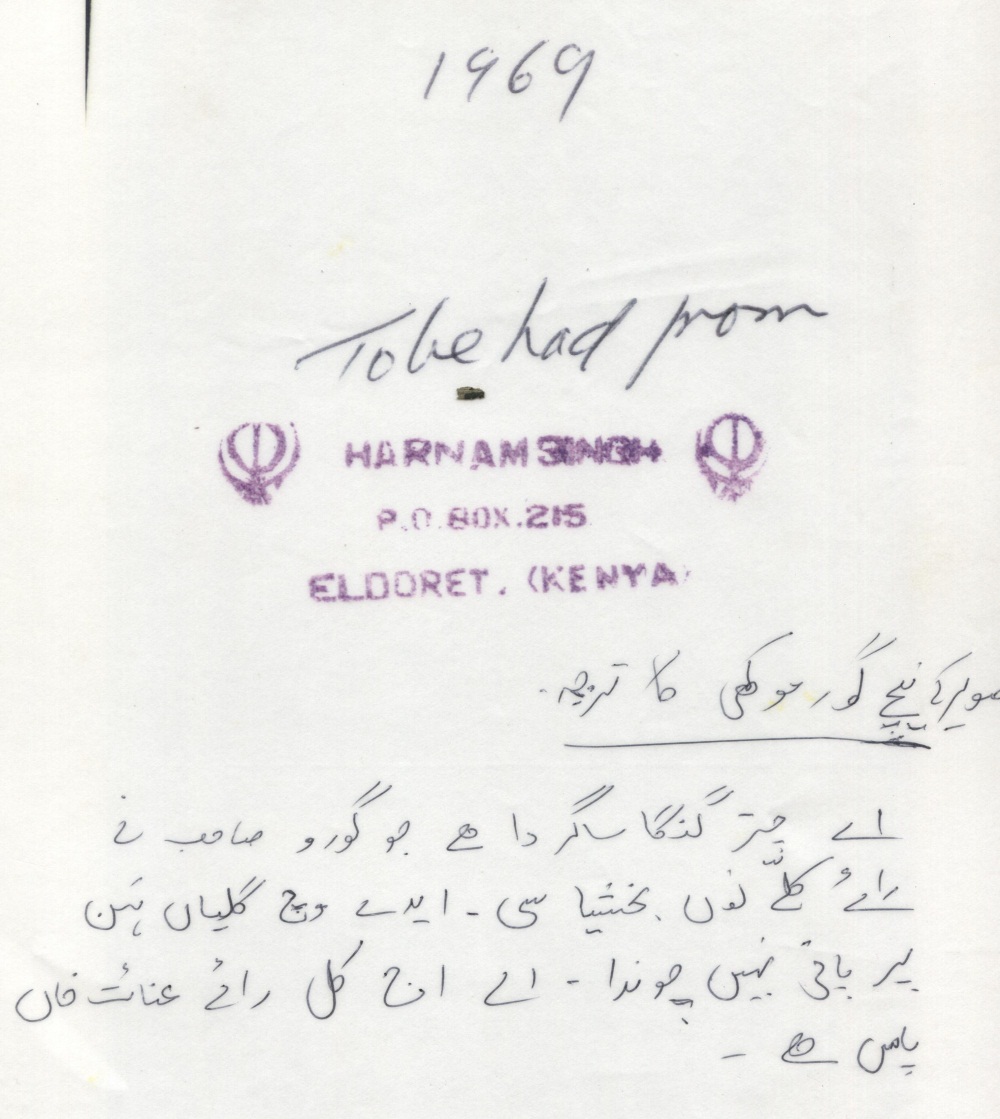 1969
To be had from
HARNAM SINGH
P.O. BOX.215
ELDORET. (KENYA)
تصویر کے نیچے گور موکھی کا ترجمہ۔
اے چتر گنگا ساگر دا ھے جو گورو صاحب نے
رائے کلّے نوں بخشیا سی ۔ ایدے وچ گلیاں ہَن
پر پانی نہیں چوندا ۔ اے اج کل رائے عنائت خاں
پاس ھے ۔